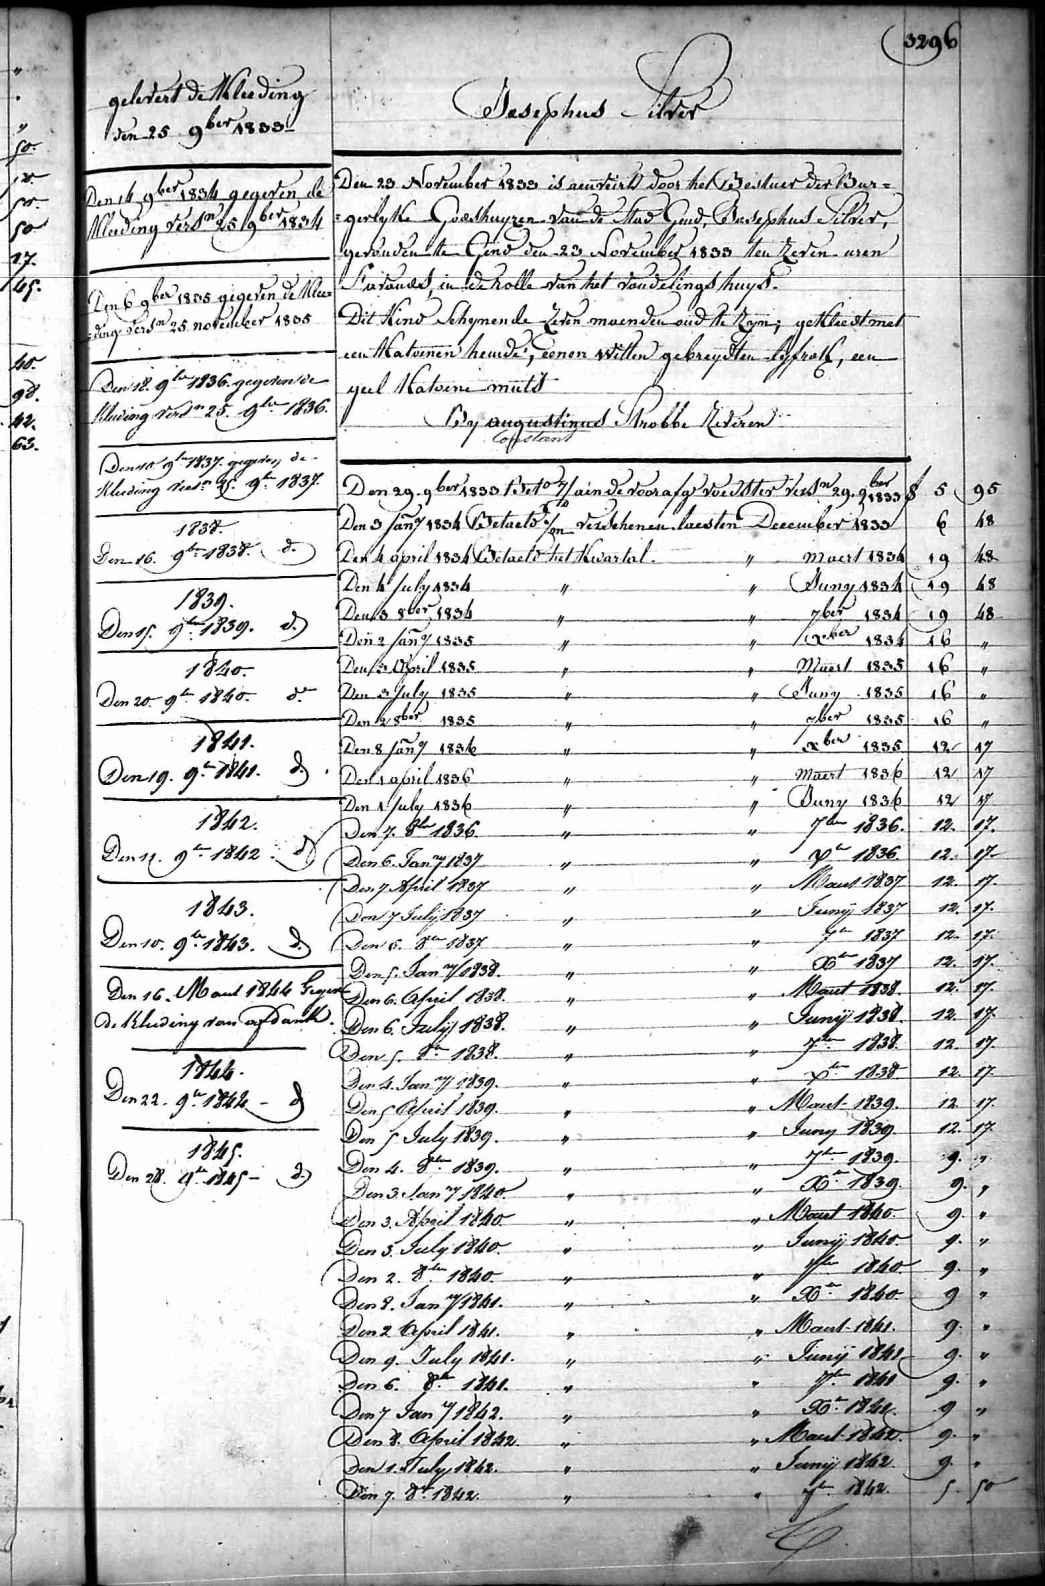 3296
gelevert de Kleeding
den 25 9ber 1833
Josephus Silver
Den 14 9ber 1834 gegeven de
Kleeding versn 25 9ber 1834
Den 6 9ber 1835 gegeven de Klee=
=ding versn 25 november 1835
Den 18. 9ber 1836. gegeven de
Kleeding versn 25. 9ber 1836.
Den 10 9ber 1837. gegeven de
Kleeding versn 25. 9br 1837.
1838.
Den 16. 9br 1838. do
1839.
Den 15. 9ber 1839. do
1840.
Den 20. 9br 1840. do
1841.
Den 19. 9br 1841. do
1842.
Den 11. 9br 1842. do
1843.
Den 10. 9br 1843. do
Den 16. Maert 1844 Gegeve
de Kleeding van afdank.
1844.
Den 22. 9br 1844 - do
1845.
Den 28. 9br 1845 - do
Den 23 November 1833 is aenveird door het Bestuer der Bur=
=gerlyke Godshuyzen van de Stad Gend, Josephus Silver,
gevonden te Gend den 23 November 1833 ten zeven uren
S'avonds, in de rolle van het vondelingshuys.
Dit Kind Schynende zeven maenden oud te zyn; gekleed met
een Katoenen hemde, eenen witten gebreyden lyfrok, een
geel Katoene muts
By augustinus Strobbe Zeveren
Constant
Den 29. 9ber 1833 Bet aen de voorafge voedster versn 29. 9ber 1833 f 5 95
Den 3 Jany 1834 Betaeld verschenen laesten December 1833 6 48
Den 4 april 1834 Betaeld het Kwartal. " maert 1834 19 48
Den 4 July 1834 " " Juny 1834 19 48
Den 3 8ber 1834 " " 7ber 1834 19 48
Den 2 Jany 1835 " " xber 1834 16 "
Den 3 April 1835 " " Maert 1835 16 "
Den 3 July 1835 " " Juny 1835 16 "
Den 2 8ber 1835 " " 7ber 1835 16 "
Den 8 Jany 1836 " " xber 1835 12 17
Den 1 april 1836 " " Maert 1836 12 17
Den 1 July 1836 " " Juny 1836 12 17
Den 7. 8ber 1836. " " 7ber 1836. 12. 17.
Den 6. Jany 1837 " " Xbr 1836. 12. 17.
Den 7 April 1837 " " Maert 1837 12. 17.
Den 7 July 1837 " " Junij 1837 12. 17.
Den 6. 8br 1837 " " 7br 1837 12. 17.
Den 5. Jany 1838. " " Xbr 1837 12. 17.
Den 6. April 1838. " " Maert 1838. 12. 17.
Den 6. July 1838. " " Junij 1838. 12. 17.
Den 5. 8br 1838. " " 7br 1838. 12. 17.
Den 4. Jany 1839. " " Xbr 1838 12. 17.
Den 5 April 1839. " " Maert 1839. 12. 17.
Den 5 July 1839. " " Juny 1839. 12. 17.
Den 4. 8br 1839. " " 7br 1839. 9. "
Den 3. Jany 1840. " " Xbr 1839. 9. "
Den 3. April 1840. " " Maert 1840. 9. "
Den 3. July 1840. " " Junij 1840. 9. "
Den 2. 8br 1840. " " 7br 1840. 9. "
Den 8. Jany 1841. " " Xbr 1840. 9 "
Den 2 April 1841. " " Maert 1841. 9. "
Den 9. July 1841. " " Junij 1841 9. "
Den 6. 8br 1841. " " 7br 1841 9. "
Den 7 Jany 1842. " " Xbr 1841. 9 "
Den 8. April 1842. " " Maert 1842. 9. "
Den 1. July 1842. " " Junij 1842. 9. "
Den 7. 8br 1842. " " 7br 1842. 5. 50